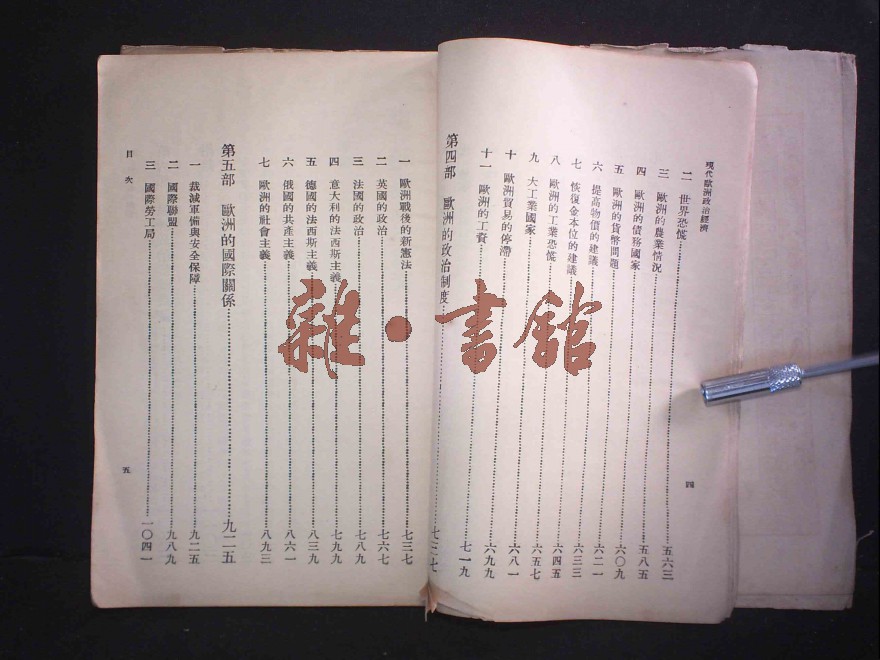 現代歐洲政治經濟
二 世界恐慌……五六三
三 歐洲的農業情況……五八五
四 歐洲的債務國家……六〇九
五 歐洲的貨幣問題……六二一
六 提高物價的建議……六三三
七 恢復金本位的建議……六四五
八 歐洲的工業恐慌……六五七
九 大工業國家……六八一
十 歐洲貿易的停滯……六九九
十一 歐洲的工資……七一九
第四部 歐洲的政治制度……七三七
四
一 歐洲戰後的新憲法……七三七
二 英國的政治……七六七
三 法國的政治……七八九
四 意大利的法西斯主義……七九九
五 德國的法西斯主義……八三九
六 俄國的共產主義……八六一
七 歐洲的社會主義……八九三
第五部 歐洲的國際關係……九二五
一 裁減軍備與安全保障……九二五
二 國際聯盟……九八九
三 國際勞工局……一〇四一
目次
五
雜·書館